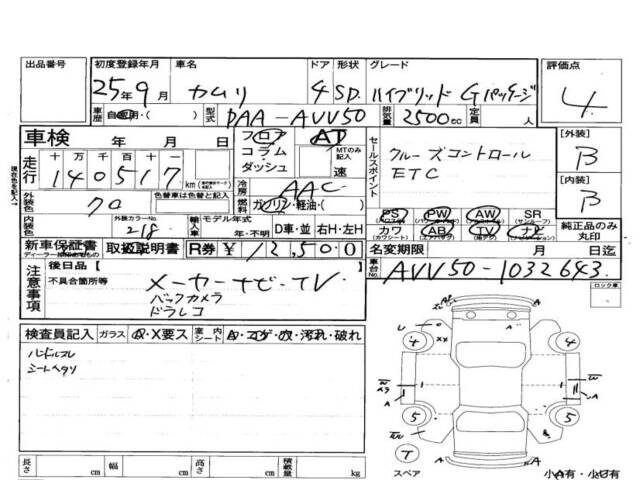 出品番号 初度登録年月 車名 ドア 形状 グレード 評価点
25年9月 カムリ 4 SD ハイブリッド Gパッケージ 4
車歴 自家用・( ) 型式 DAA-AVV50 排気量 2500cc 定員 人
車検 年 月 日 フロア AT セールスポイント クルーズコントロール [外装] B
走行 十万千百十一 コラム MTのみ記入 ETC
140517 km ダッシュ 速 [内装] B
冷房 AAC
外装色 クロ 色替車は色替と記入 燃料 ガソリン・軽油・( ) PS PW AW SR 純正品のみ丸印
内装色 外装カラーNo. 218 輸入車 モデル年式 年・不明 D車・並 右H・左H カワ AB TV ナビ
新車保証書 取扱説明書 R券 ¥12,500 名変期限 月 日迄
注意事項 後日品【 】 車台No. AVV50-1032643
不具合箇所等 メーカーナビ・TV
バックカメラ
ドラレコ
ロック車
検査員記入 ガラス A・X要ス 室内シート
ハンドルスレ
シートヘタリ
長さ cm 幅 cm 高さ cm 積載量 kg
4 4
5 5
T
スペア 小A有・小U有